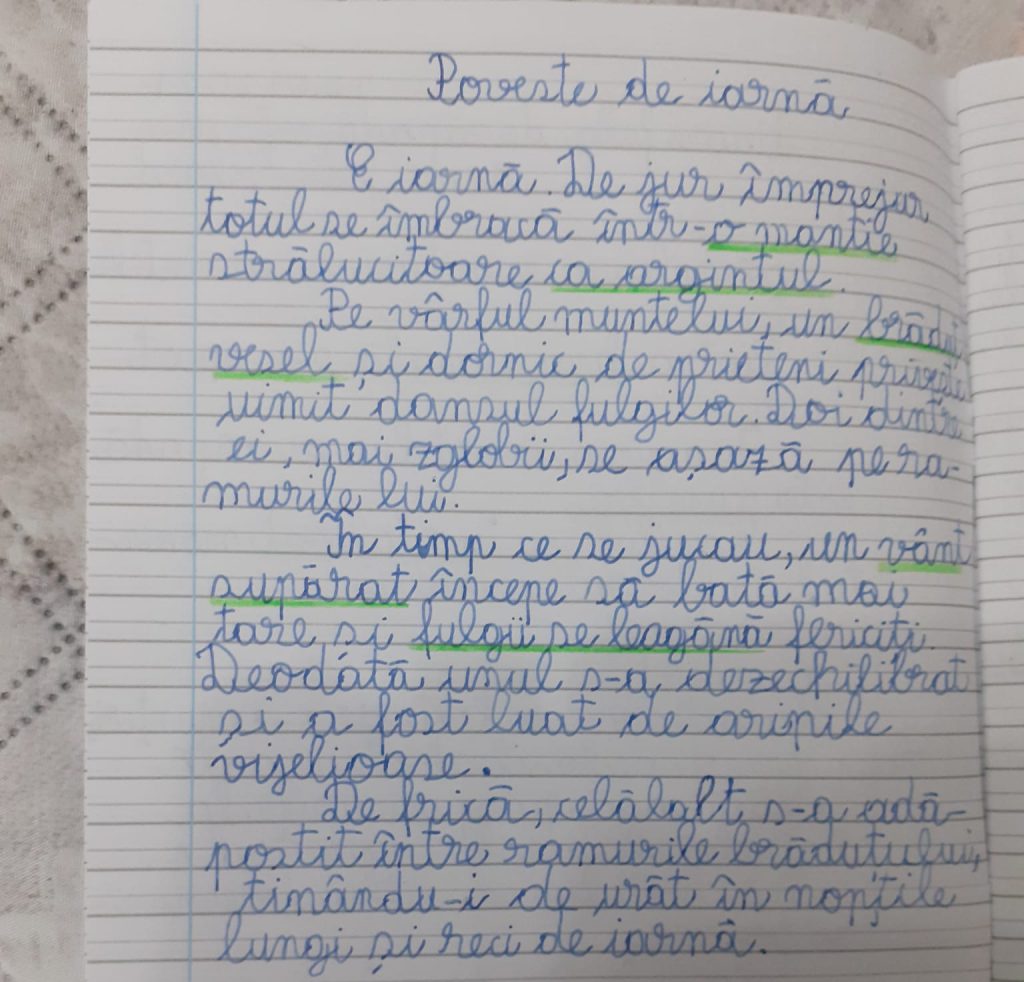 Poveste de iarnă
E iarnă. De jur împrejur
totul se îmbracă într-o mantie
strălucitoare ca argintul.
Pe vârful muntelui, un
vesel și dornic de prieteni
uimit dansul fulgilor. Doi dintre
ei, mai zglobii, se așază pe ra-
murile lui.
În timp ce se jucau, un vânt
supărat începe să bată mai
tare și fulgii se leagănă fericiți.
Deodată unul s-a dezechilibrat
și a fost luat de aripile
vijelioase.
De frică, celălalt s-a adă-
postit între ramurile brăduțului,
ținându-i de urât în nopțile
lungi și reci de iarnă.